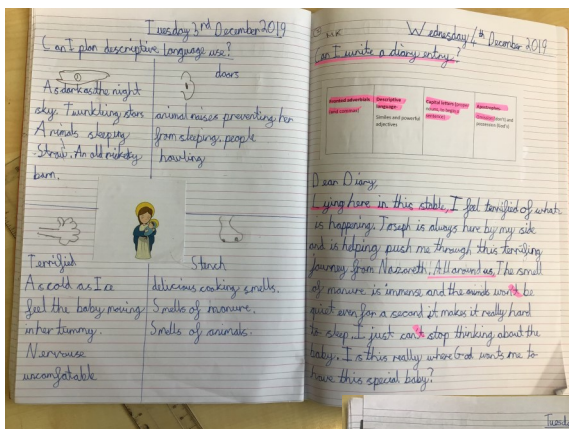 Tuesday 3rd December 2019
Can I plan descriptive language use?
As dark as the night
sky. Twinkling stars
Animals sleeping
Straw. An old rickety
barn.
doors
animal noises preventing her
from sleeping. people
howling
Terrified
As cold as Ice
feel the baby moving
in her tummy.
Nervouse
uncomfatable
Stench
delicious cooking smells.
Smells of manure.
Smells of animals.
MK
Wednesday 4th December 2019
Can I write a diary entry?
Fronted adverbials
(and commas)
Descriptive
language
Similes and powerful
adjectives
Capital letters (proper
nouns, to begin a
sentence)
Apostrophes
possessive (God's)
Dear Diary,
Lying here in this stable, I feel terrified of what
is happening. Joseph is always here by my side
and is helping push me through this terrifing
journey from Nazareth! All around us, The smell
of manure is immense and the animals won't be
quiet even for a second it makes it really hard
to sleep. I just can't stop thinking about the
baby. I is this really where God wants me to
have this special baby?
Tuesd